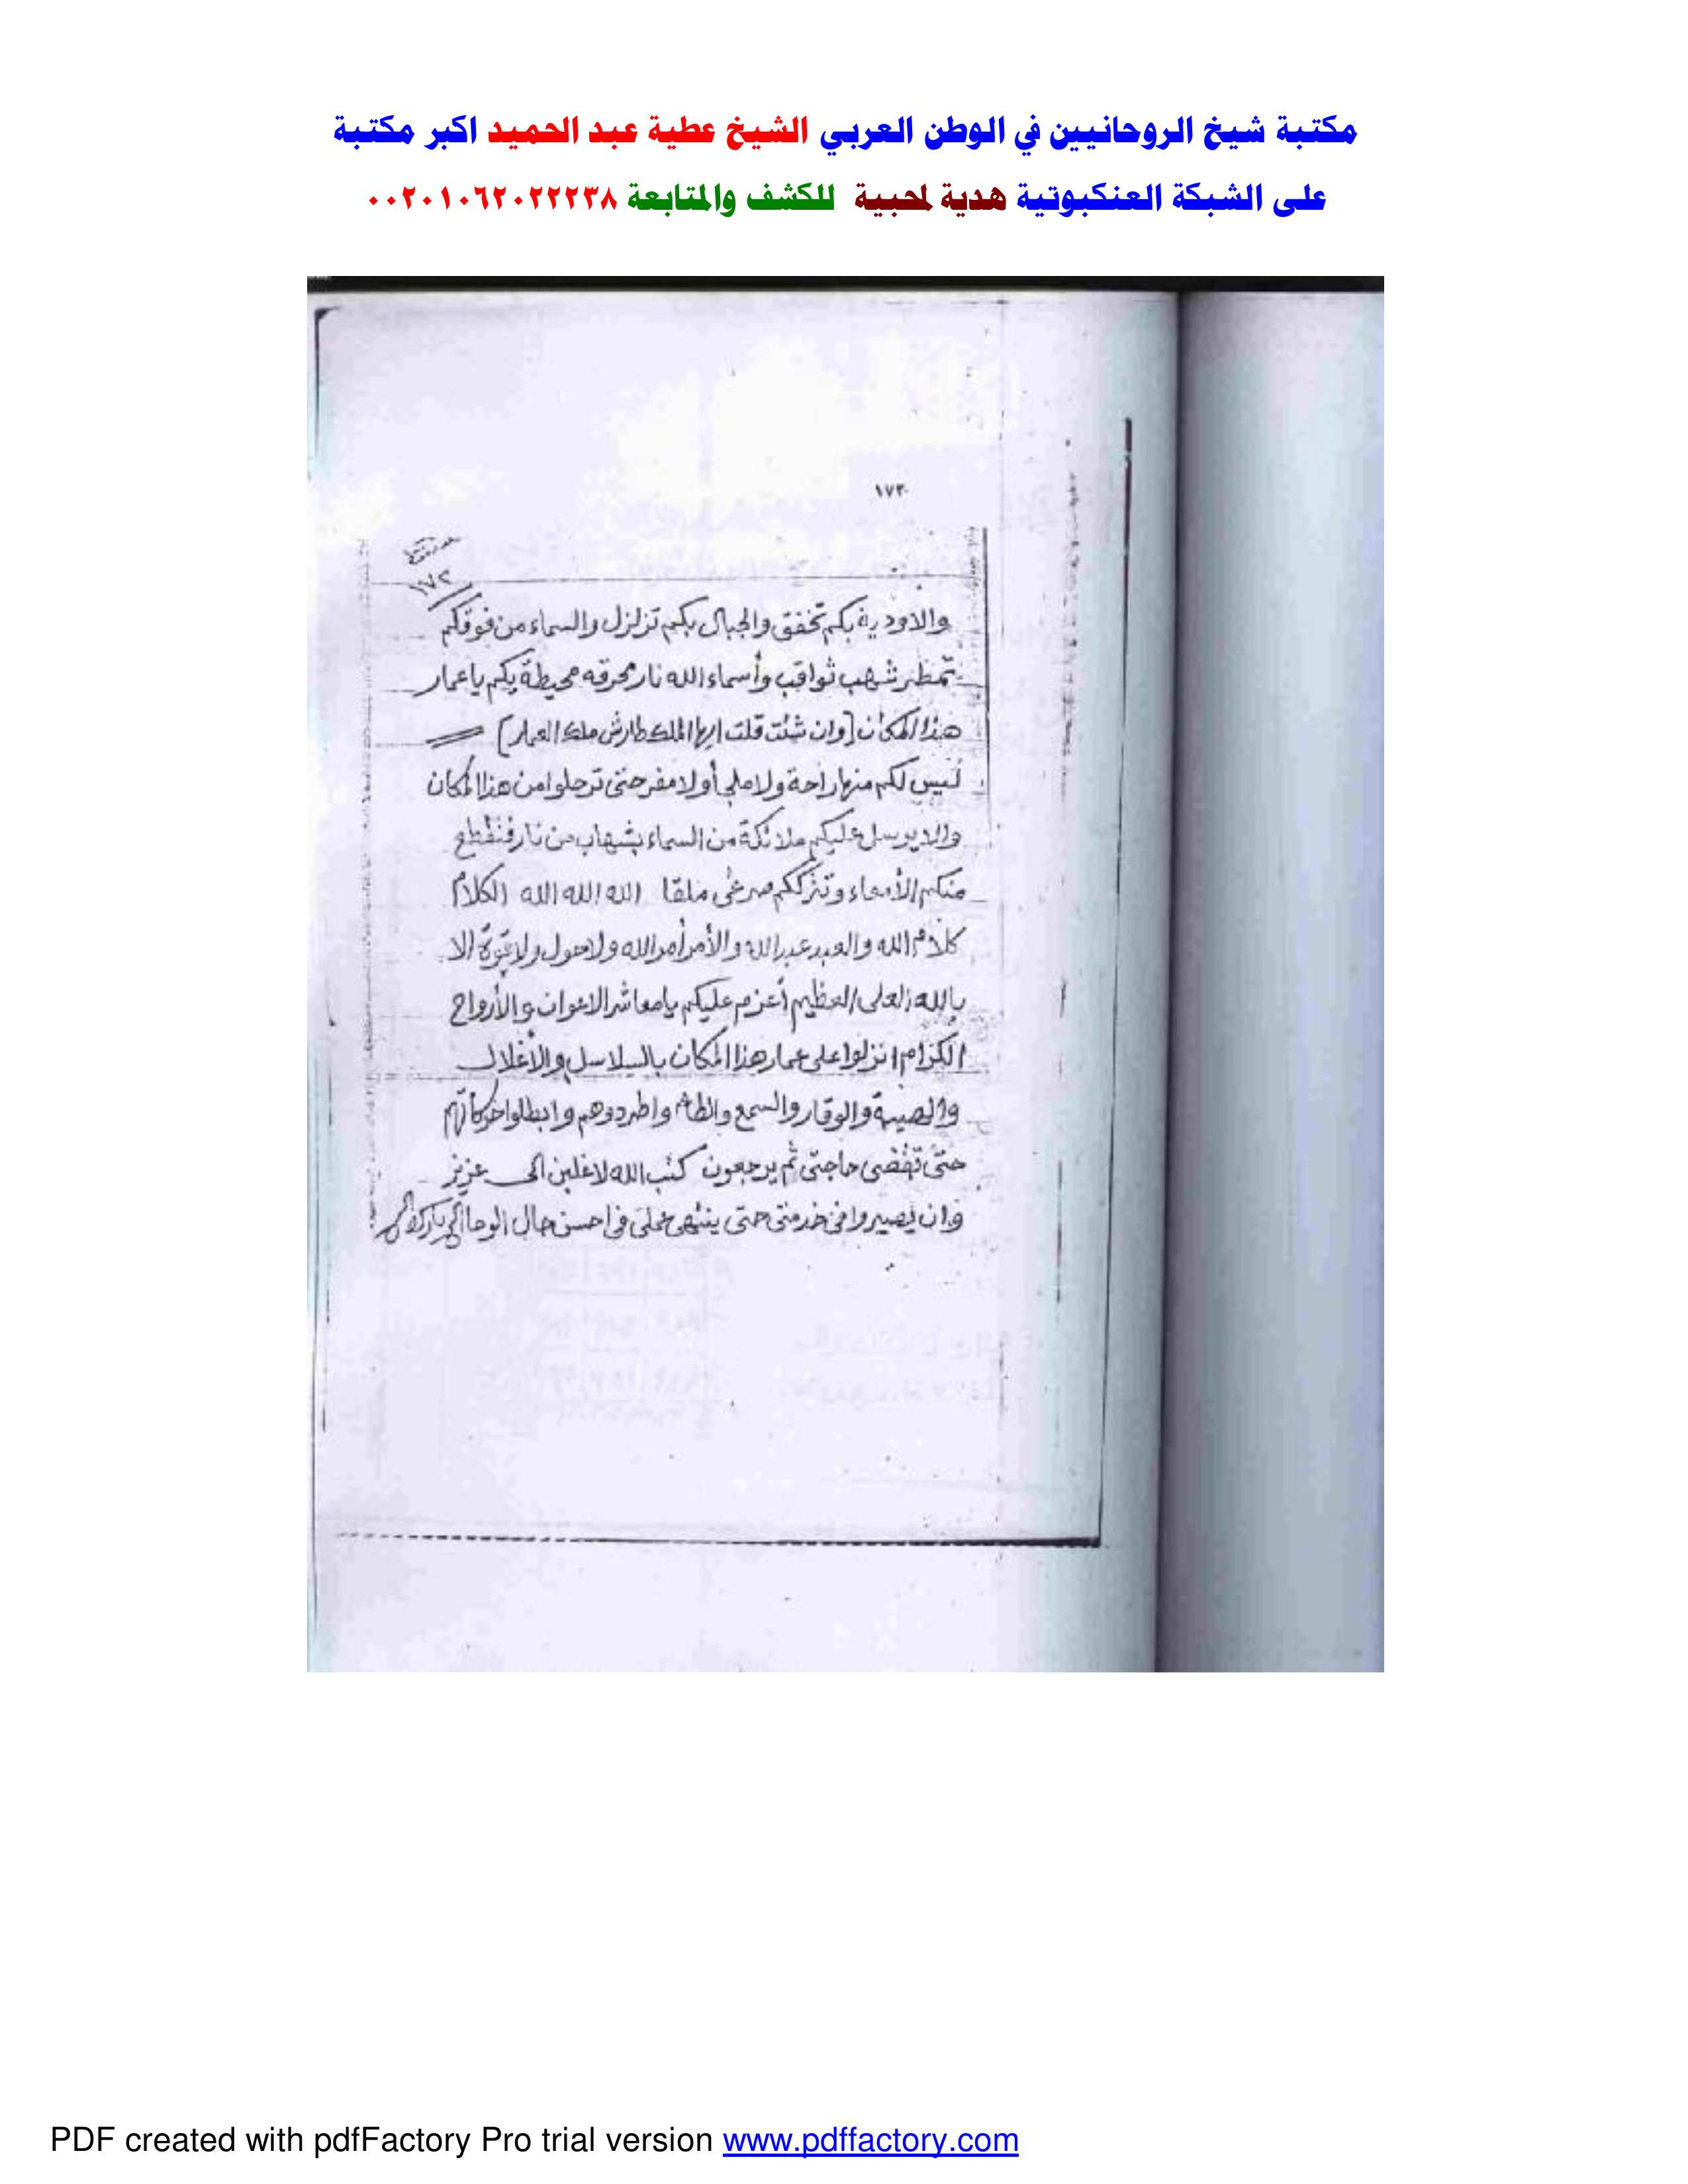 مكتبة شيخ الروحانيين في الوطن العربي الشيخ عطية عبد الحميد اكبر مكتبة
على الشبكة العنكبوتية هدية لمحبية للكشف والمتابعة ٠٠٢٠١٠٦٢٠٢٢٢٣٨
١٧٣
١٧٢
والاودية بكم تخفق والجبال بكم تزلزل والسماء من فوقكم
تمطر شهب ثواقب وأسماء الله نار محرقه محيطة بكم ياعمار
هذا المكان [وان شئت قلت ايها الملك طارش ملك العمار]
ليس لكم منها راحة ولا ملجأ ولا مفر حتى ترحلوا من هذا المكان
والا يرسل عليكم ملائكة من السماء بشهاب من نار فتقطع
منكم الأمعاء وتترككم صرعى ملقا الله الله الله الكلام
كلام الله والعبد عبد الله والأمر أمر الله ولا حول ولا قوة الا
بالله العلى العظيم أعزم عليكم يا معاشر الاعوان والأرواح
الكرام انزلوا على عمار هذا المكان بالسلاسل والأغلال
والهيبة والوقار والسمع والطاعة واطردوهم وابطلوا حركاتهم
حتى تقضى حاجتى ثم يرجعون كتب الله لاغلبن الى عزيز
وان يصيروا فى خدمتى حتى ينتهى عملى فى احسن حال الوحا
PDF created with pdfFactory Pro trial version www.pdffactory.com